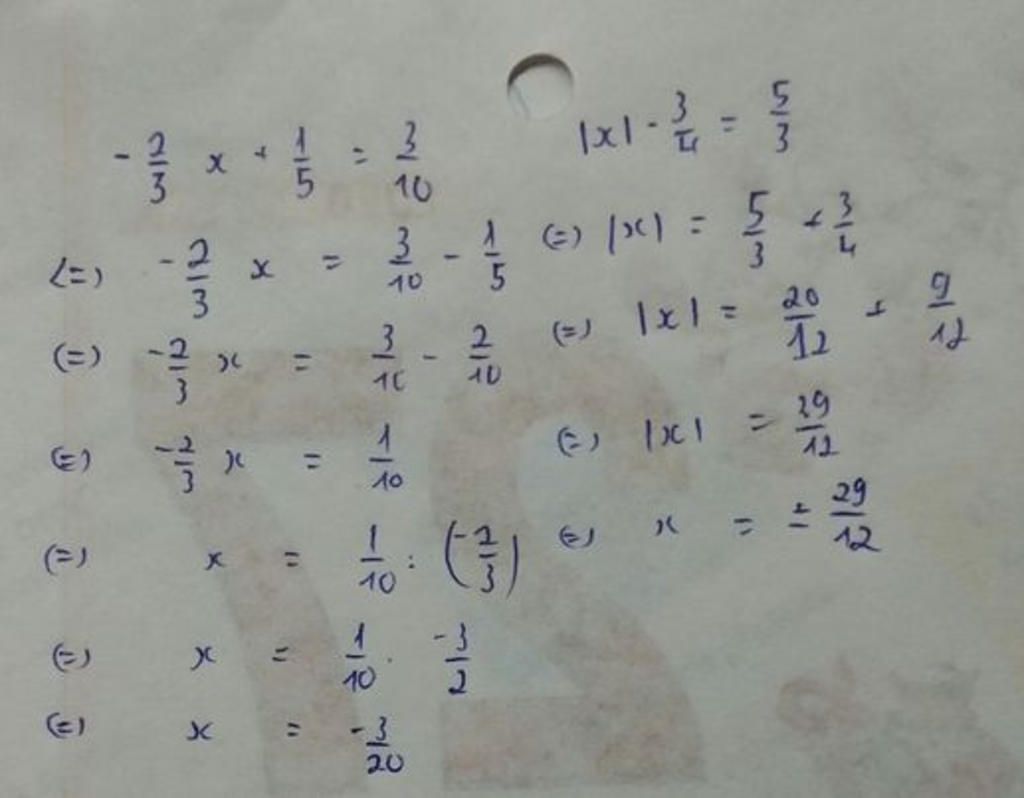 -2/3 x + 1/5 = 3/10
<=> -2/3 x = 3/10 - 1/5
(=) -2/3 x = 3/10 - 2/10
(=) -2/3 x = 1/10
(=) x = 1/10 : (-2/3)
(=) x = 1/10 . -3/2
(=) x = -3/20
|x| - 3/4 = 5/3
(=) |x| = 5/3 + 3/4
(=) |x| = 20/12 + 9/12
(=) |x| = 29/12
(=) x = ± 29/12